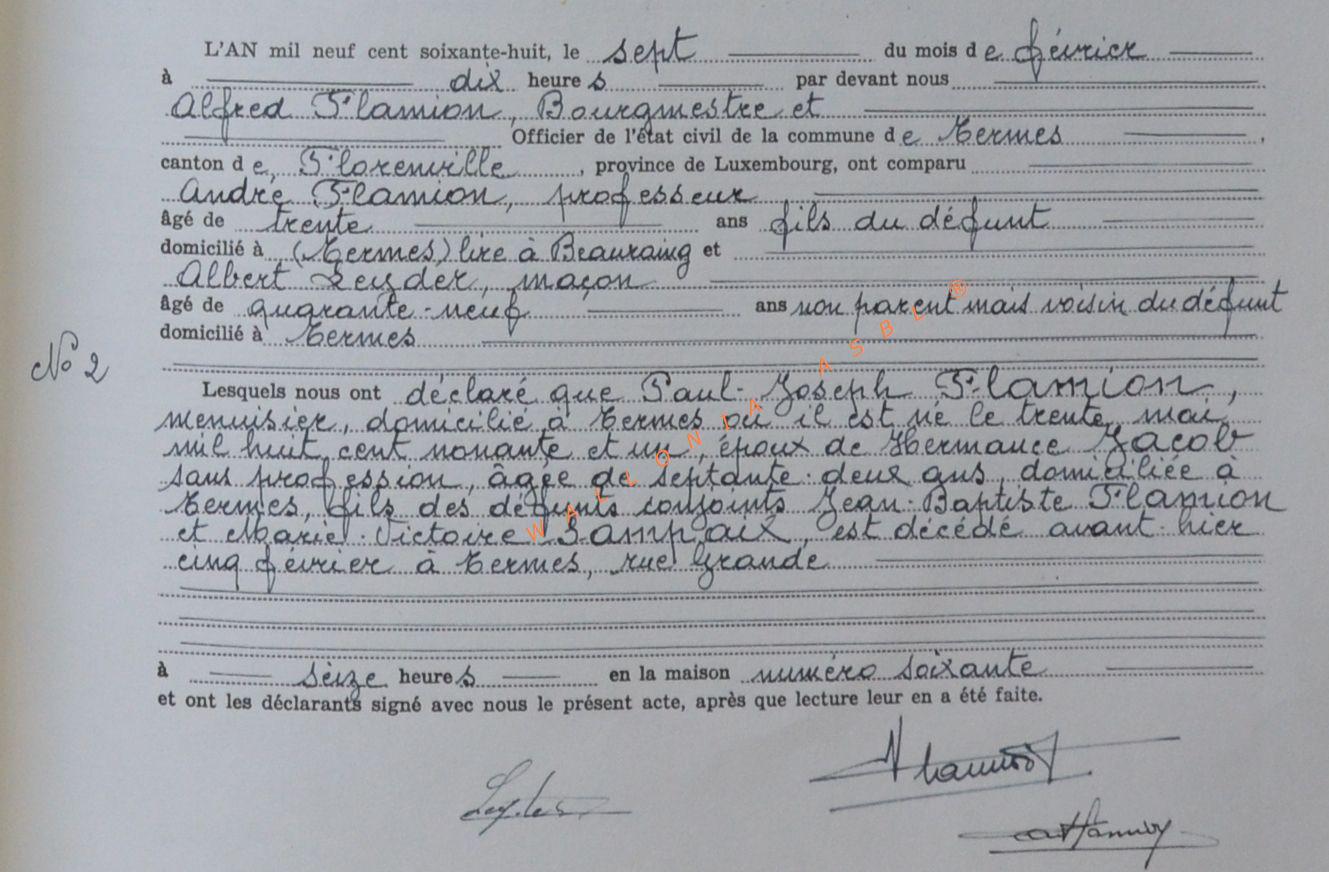 L'AN mil neuf cent soixante-huit, le sept du mois de février
à dix heures par devant nous
Alfred Flamion, Bourgmestre et
Officier de l'état civil de la commune de Termes,
canton de Florenville, province de Luxembourg, ont comparu
André Flamion, professeur
âgé de trente ans fils du défunt
domicilié à (Termes) lire à Beauraing et
Albert Leyder, maçon
âgé de quarante-neuf ans non parent mais voisin du défunt
domicilié à Termes
No 2
Lesquels nous ont déclaré que Paul-Joseph Flamion,
menuisier, domicilié à Termes où il est né le trente mai
mil huit cent nonante et un, époux de Hermance Jacob
sans profession, âgée de septante-deux ans, domiciliée à
Termes, fils des défunts conjoints Jean-Baptiste Flamion
et Marie-Victoire Lampaix, est décédé avant-hier
cinq février à Termes, rue Grande
à seize heures en la maison numéro soixante
et ont les déclarants signé avec nous le présent acte, après que lecture leur en a été faite.
WALLONIA ASBL ®